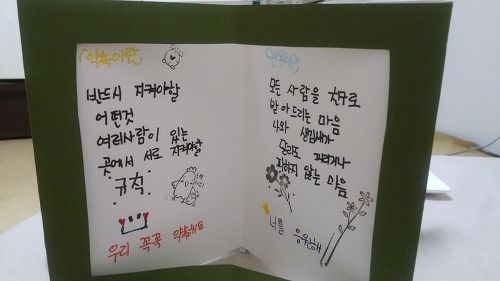 「약속이란
반드시 지켜야할
어떤것
여러사람이 있는
곳에서 서로 지켜야할
규칙
우리 꼭꼭 약속해요
모든 사람을 친구로
받아드리는 마음
나와 생김새가
달라도 꺼리거나
피하지 않는 마음
너를 응원해